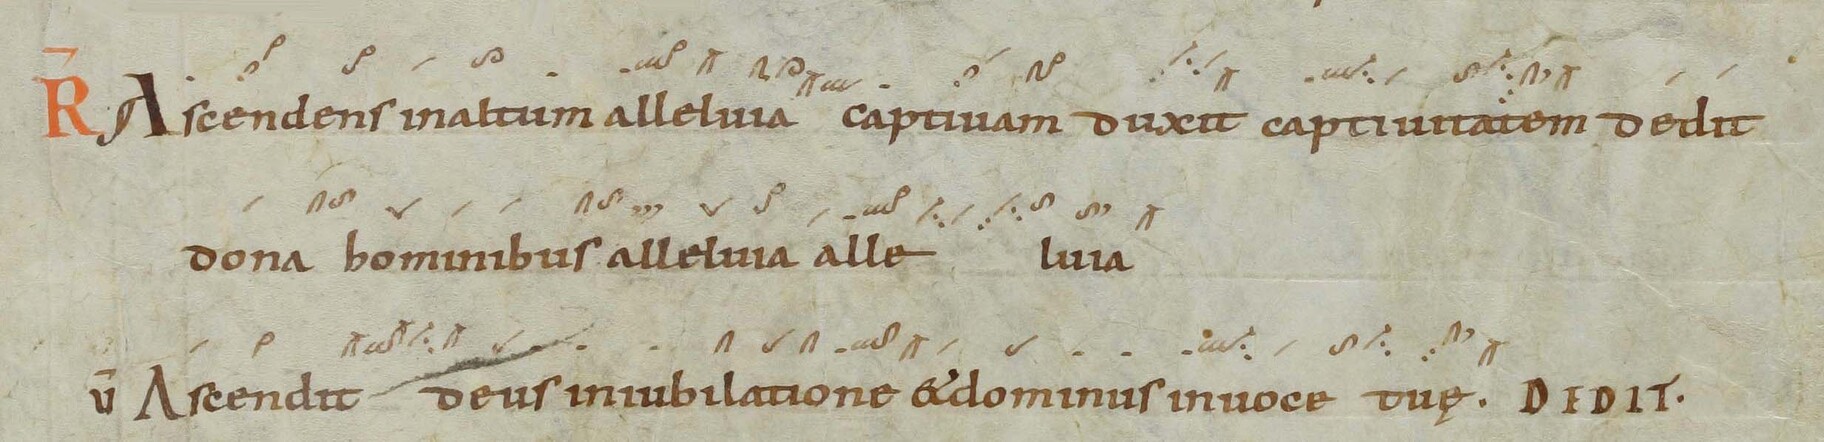 R̄ Ascendens in altum alleluia captiuam duxit captiuitatem dedit
dona hominibus alleluia alleluia
v̄ Ascendit deus in iubilatione & dominus in uoce tuę. DEDIT.